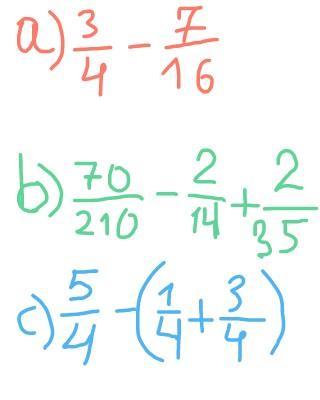 a) 3/4 - 7/16
b) 70/210 - 2/14 + 2/35
c) 5/4 - (1/4 + 3/4)